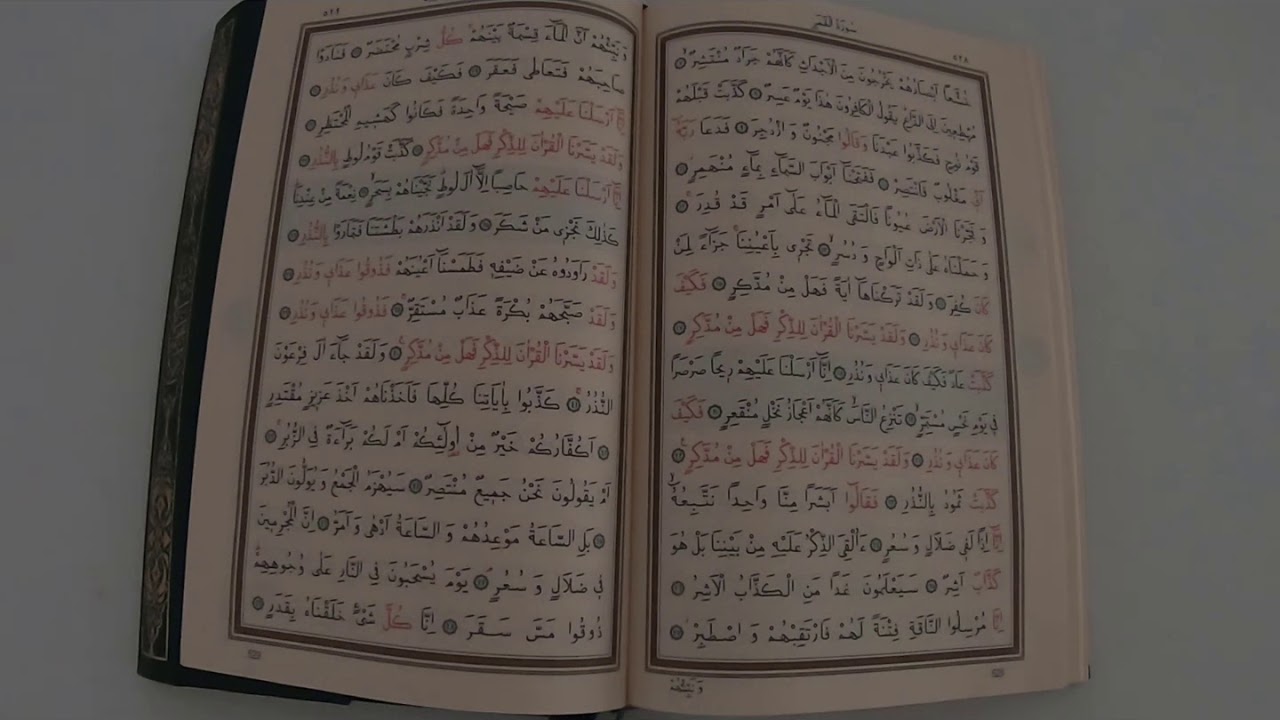 سورة القمر
٥٢٨
خُشَّعاً اَبْصَارُهُمْ يَخْرُجُونَ مِنَ الْاَجْدَاثِ كَاَنَّهُمْ جَرَادٌ مُنْتَشِرٌۙ
مُهْطِع۪ينَ اِلَى الدَّاعِۜ يَقُولُ الْكَافِرُونَ هٰذَا يَوْمٌ عَسِرٌ كَذَّبَتْ قَبْلَهُمْ
قَوْمُ نُوحٍ فَكَذَّبُوا عَبْدَنَا وَقَالُوا مَجْنُونٌ وَازْدُجِرَ فَدَعَا رَبَّهُٓ
اَنّ۪ي مَغْلُوبٌ فَانْتَصِرْ فَفَتَحْنَٓا اَبْوَابَ السَّمَٓاءِ بِمَٓاءٍ مُنْهَمِرٍۘ
وَفَجَّرْنَا الْاَرْضَ عُيُوناً فَالْتَقَى الْمَٓاءُ عَلٰٓى اَمْرٍ قَدْ قُدِرَۚ
وَحَمَلْنَاهُ عَلٰى ذَاتِ اَلْوَاحٍ وَدُسُرٍۙ تَجْر۪ي بِاَعْيُنِنَاۚ جَزَٓاءً لِمَنْ
كَانَ كُفِرَ وَلَقَدْ تَرَكْنَاهَٓا اٰيَةً فَهَلْ مِنْ مُدَّكِرٍ فَكَيْفَ
كَانَ عَذَاب۪ي وَنُذُرِ وَلَقَدْ يَسَّرْنَا الْقُرْاٰنَ لِلذِّكْرِ فَهَلْ مِنْ مُدَّكِرٍ
كَذَّبَتْ عَادٌ فَكَيْفَ كَانَ عَذَاب۪ي وَنُذُرِ اِنَّٓا اَرْسَلْنَا عَلَيْهِمْ ر۪يحاً صَرْصَراً
ف۪ي يَوْمِ نَحْسٍ مُسْتَمِرٍّۙ تَنْزِعُ النَّاسَۙ كَاَنَّهُمْ اَعْجَازُ نَخْلٍ مُنْقَعِرٍ فَكَيْفَ
كَانَ عَذَاب۪ي وَنُذُرِ وَلَقَدْ يَسَّرْنَا الْقُرْاٰنَ لِلذِّكْرِ فَهَلْ مِنْ مُدَّكِرٍ۟
كَذَّبَتْ ثَمُودُ بِالنُّذُرِ فَقَالُٓوا اَبَشَراً مِنَّا وَاحِداً نَتَّبِعُهُٓۙ
اِنَّٓا اِذاً لَف۪ي ضَلَالٍ وَسُعُرٍ ءَاُلْقِيَ الذِّكْرُ عَلَيْهِ مِنْ بَيْنِنَا بَلْ هُوَ
كَذَّابٌ اَشِرٌ سَيَعْلَمُونَ غَداً مَنِ الْكَذَّابُ الْاَشِرُ
اِنَّا مُرْسِلُوا النَّاقَةِ فِتْنَةً لَهُمْ فَارْتَقِبْهُمْ وَاصْطَبِرْۘ
وَنَبِّئْهُمْ
٥٢٩
وَنَبِّئْهُمْ اَنَّ الْمَٓاءَ قِسْمَةٌ بَيْنَهُمْۚ كُلُّ شِرْبٍ مُحْتَضَرٌ فَنَادَوْا
صَاحِبَهُمْ فَتَعَاطٰى فَعَقَرَ فَكَيْفَ كَانَ عَذَاب۪ي وَنُذُرِ
اِنَّٓا اَرْسَلْنَا عَلَيْهِمْ صَيْحَةً وَاحِدَةً فَكَانُوا كَهَش۪يمِ الْمُحْتَظِرِ
وَلَقَدْ يَسَّرْنَا الْقُرْاٰنَ لِلذِّكْرِ فَهَلْ مِنْ مُدَّكِرٍ كَذَّبَتْ قَوْمُ لُوطٍ بِالنُّذُرِ
اِنَّٓا اَرْسَلْنَا عَلَيْهِمْ حَاصِباً اِلَّٓا اٰلَ لُوطٍۜ نَجَّيْنَاهُمْ بِسَحَرٍۙ نِعْمَةً مِنْ عِنْدِنَاۜ
كَذٰلِكَ نَجْز۪ي مَنْ شَكَرَ وَلَقَدْ اَنْذَرَهُمْ بَطْشَتَنَا فَتَمَارَوْا بِالنُّذُرِ
وَلَقَدْ رَاوَدُوهُ عَنْ ضَيْفِه۪ فَطَمَسْنَٓا اَعْيُنَهُمْ فَذُوقُوا عَذَاب۪ي وَنُذُرِ
وَلَقَدْ صَبَّحَهُمْ بُكْرَةً عَذَابٌ مُسْتَقِرٌّۚ فَذُوقُوا عَذَاب۪ي وَنُذُرِ
وَلَقَدْ يَسَّرْنَا الْقُرْاٰنَ لِلذِّكْرِ فَهَلْ مِنْ مُدَّكِرٍ۟ وَلَقَدْ جَٓاءَ اٰلَ فِرْعَوْنَ
النُّذُرُۚ كَذَّبُوا بِاٰيَاتِنَا كُلِّهَا فَاَخَذْنَاهُمْ اَخْذَ عَز۪يزٍ مُقْتَدِرٍ
اَكُفَّارُكُمْ خَيْرٌ مِنْ اُو۬لٰٓئِكُمْ اَمْ لَكُمْ بَرَٓاءَةٌ فِي الزُّبُرِۚ
اَمْ يَقُولُونَ نَحْنُ جَم۪يعٌ مُنْتَصِرٌ سَيُهْزَمُ الْجَمْعُ وَيُوَلُّونَ الدُّبُرَ
بَلِ السَّاعَةُ مَوْعِدُهُمْ وَالسَّاعَةُ اَدْهٰى وَاَمَرُّ اِنَّ الْمُجْرِم۪ينَ
ف۪ي ضَلَالٍ وَسُعُرٍۢ يَوْمَ يُسْحَبُونَ فِي النَّارِ عَلٰى وُجُوهِهِمْۜ
ذُوقُوا مَسَّ سَقَرَ اِنَّا كُلَّ شَيْءٍ خَلَقْنَاهُ بِقَدَرٍ